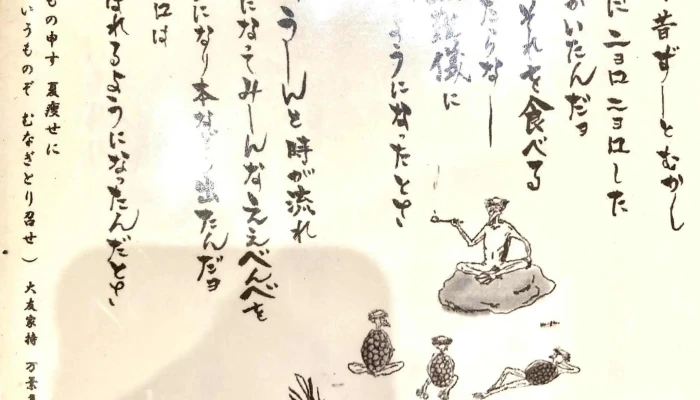 昔ずーとむかし
だ ニョロニョロした
がいたんだョ
それを食べる
たらなー
儀に
ようになったとさ
うーんと時が流れ
になってみーんなええべんべを
になり本などに出たんだョ
口は
ばれるようになったんだとさ
もの申す 夏痩せに
いうものぞ むなぎとり召せ）大友家持 万葉